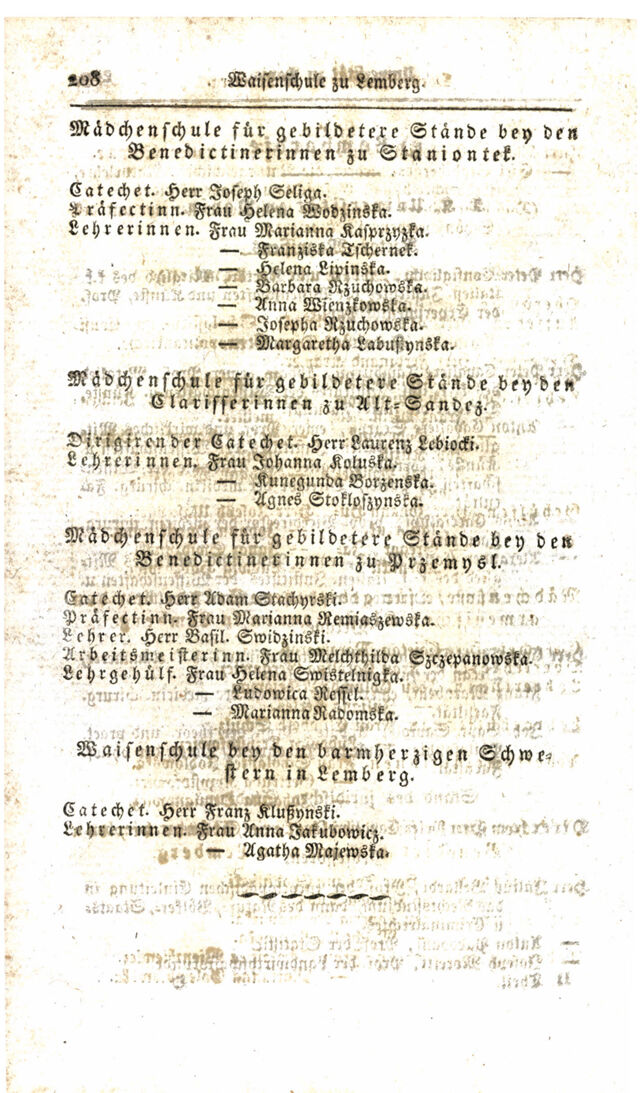 208 Waisenschule zu Lemberg.
Mädchenschule für gebildetere Stände bey den
Benedictinerinnen zu Staniontek.
Catechet. Herr Joseph Seliga.
Präfectinn. Frau Helena Wodzinska.
Lehrerinnen. Frau Marianna Kasprzyzka.
— Franziska Tschernek.
— Helena Lipinska.
— Barbara Rzuchowska.
— Anna Wienzkowska.
— Josepha Rzuchowska.
— Margaretha Labußynska.
Mädchenschule für gebildetere Stände bey den
Clarisserinnen zu Alt-Sandez.
Dirigirender Catechet. Herr Laurenz Lebiocki.
Lehrerinnen. Frau Johanna Koluska.
— Kunegunda Borzenska.
— Agnes Stokloszynska.
Mädchenschule für gebildetere Stände bey den
Benedictinerinnen zu Przemysl.
Catechet. Herr Adam Stachyrski.
Präfectinn. Frau Marianna Remiaszewska.
Lehrer. Herr Basil. Swidzinski.
Arbeitsmeisterinn. Frau Melchthilda Szczepanowska.
Lehrgehülf. Frau Helena Swistelnigka.
— Ludowica Ressel.
— Marianna Radomska.
Waisenschule bey den barmherzigen Schwe-
stern in Lemberg.
Catechet. Herr Franz Klußynski.
Lehrerinnen. Frau Anna Jakubowicz.
— Agatha Majewska.